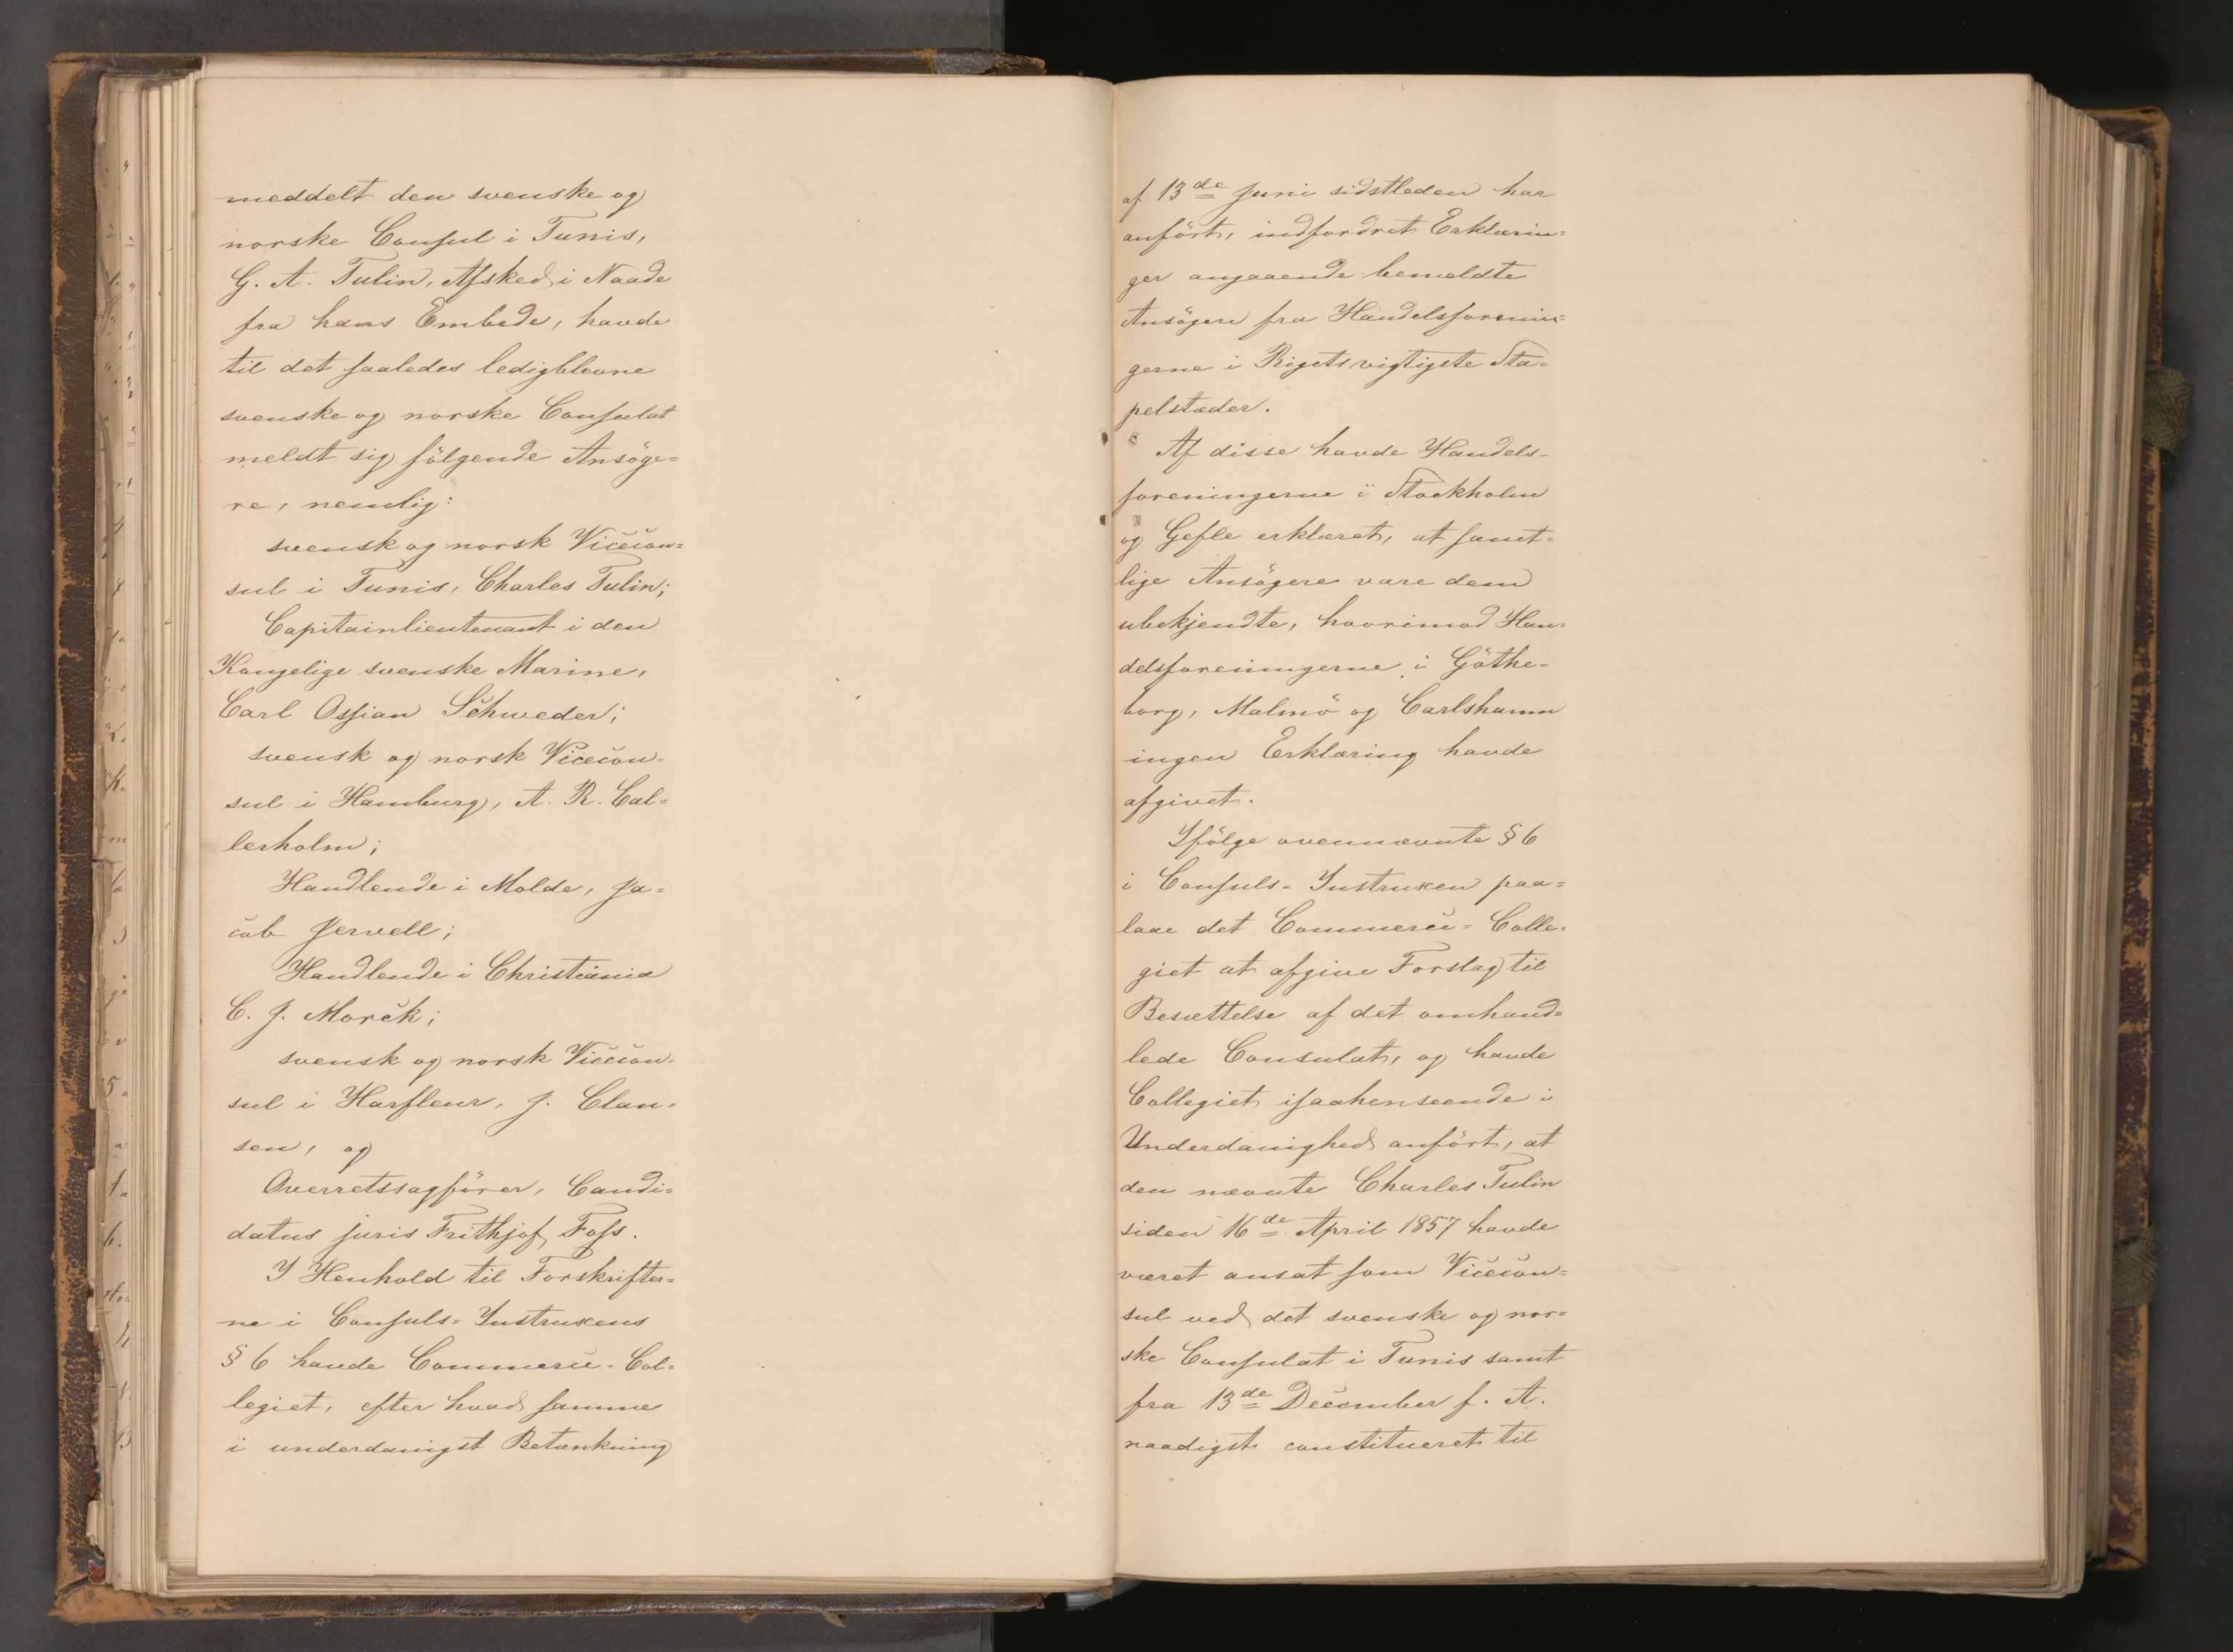 meddelt den svenske og
norske Consul i Tunis,
G. A. Tulin, Afsked i Naade
fra hans Embede, havde
til det saaledes ledigblevne
svenske og norske Consulat
meldt sig fölgende Ansöge=
re, nemlig:
svensk og norsk Vicecon=
sul i Tunis, Charles Tulin;
Capitainlieutenant i den
Kongelige svenske Marine,
Carl Ossian Schweder;
svensk og norsk Vicecon=
sul i Hamburg, A. R. Cal=
lerholm;
Handlende i Molde, Ja=
cob Jervell;
Handlende i Christiania
C. J. Morck;
svensk og norsk Vicecon=
sul i Harfleur, J. Clau=
sen, og
Overretssagförer, Candi=
datus juris Frithjof Foss.
I Henhold til Forskrifter=
ne i Consuls=Instruxens
§ 6 havde Commerce-Col=
legiet, efter hvad samme
i underdanigst Betænkning
af 13de Juni sidstleden har
anfört, indfordret Erklærin=
ger angaaende bemeldte
Ansögere fra Handelsforenin=
gerne i Rigets vigtigste Sta=
pelstæder.
Af disse havde Handels-
foreningerne i Stockholm
og Gefle erklæret, at samt=
lige Ansögere vare dem
ubekjendte, hvorimod Han=
delsforeningerne i Göthe=
borg, Malmö og Carlshamn
ingen Erklæring havde
afgivet.
Ifölge ovennævnte § 6
i Consuls-Instruxen paa=
laae det Commerce=Colle=
giet at afgive Forslag til
Besættelse af det omhand=
lede Consulat, og havde
Collegiet isaahenseende i
Underdanighed anfört, at
den nævnte Charles Tulin
siden 16de April 1857 havde
været ansat som Vicecon=
sul ved det svenske og nor=
ske Consulat i Tunis samt
fra 13de December f. A.
naadigst constitueret til